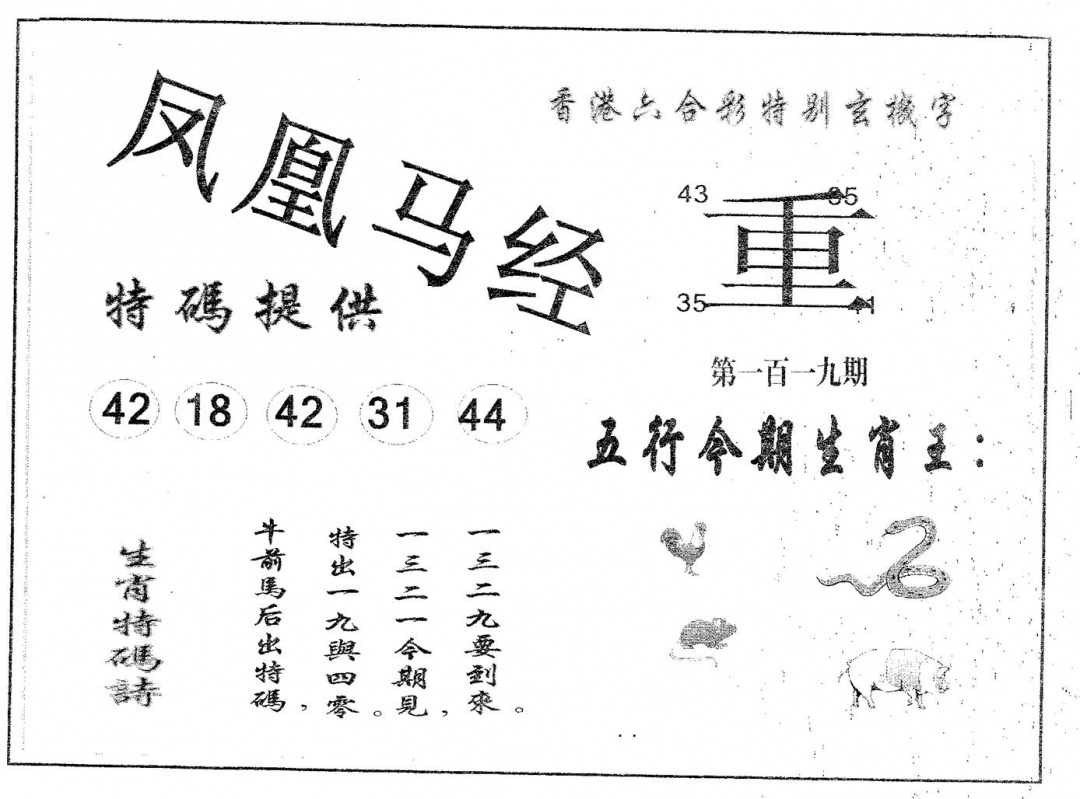 凤凰马经
香港六合彩特别玄機字
43 35
重
35 41
特碼提供
第一百一九期
42 18 42 31 44
五行今期生肖王：
生肖特碼詩
牛前馬后出特碼，
特出一九與四零。
一三二一今期見，
一三二九要到來。